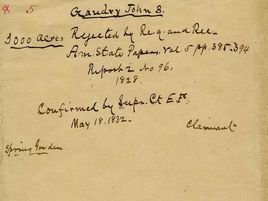 x 5 Gaudry John B.
3000 acres Rejected by Reg. and Rec.
Am. State Papers, Vol 5 pp. 385-394
Report 2 No 96.
1828.
Confirmed by Supr. Ct E.F.
May 18. 1832.
Claimant
Spring Garden